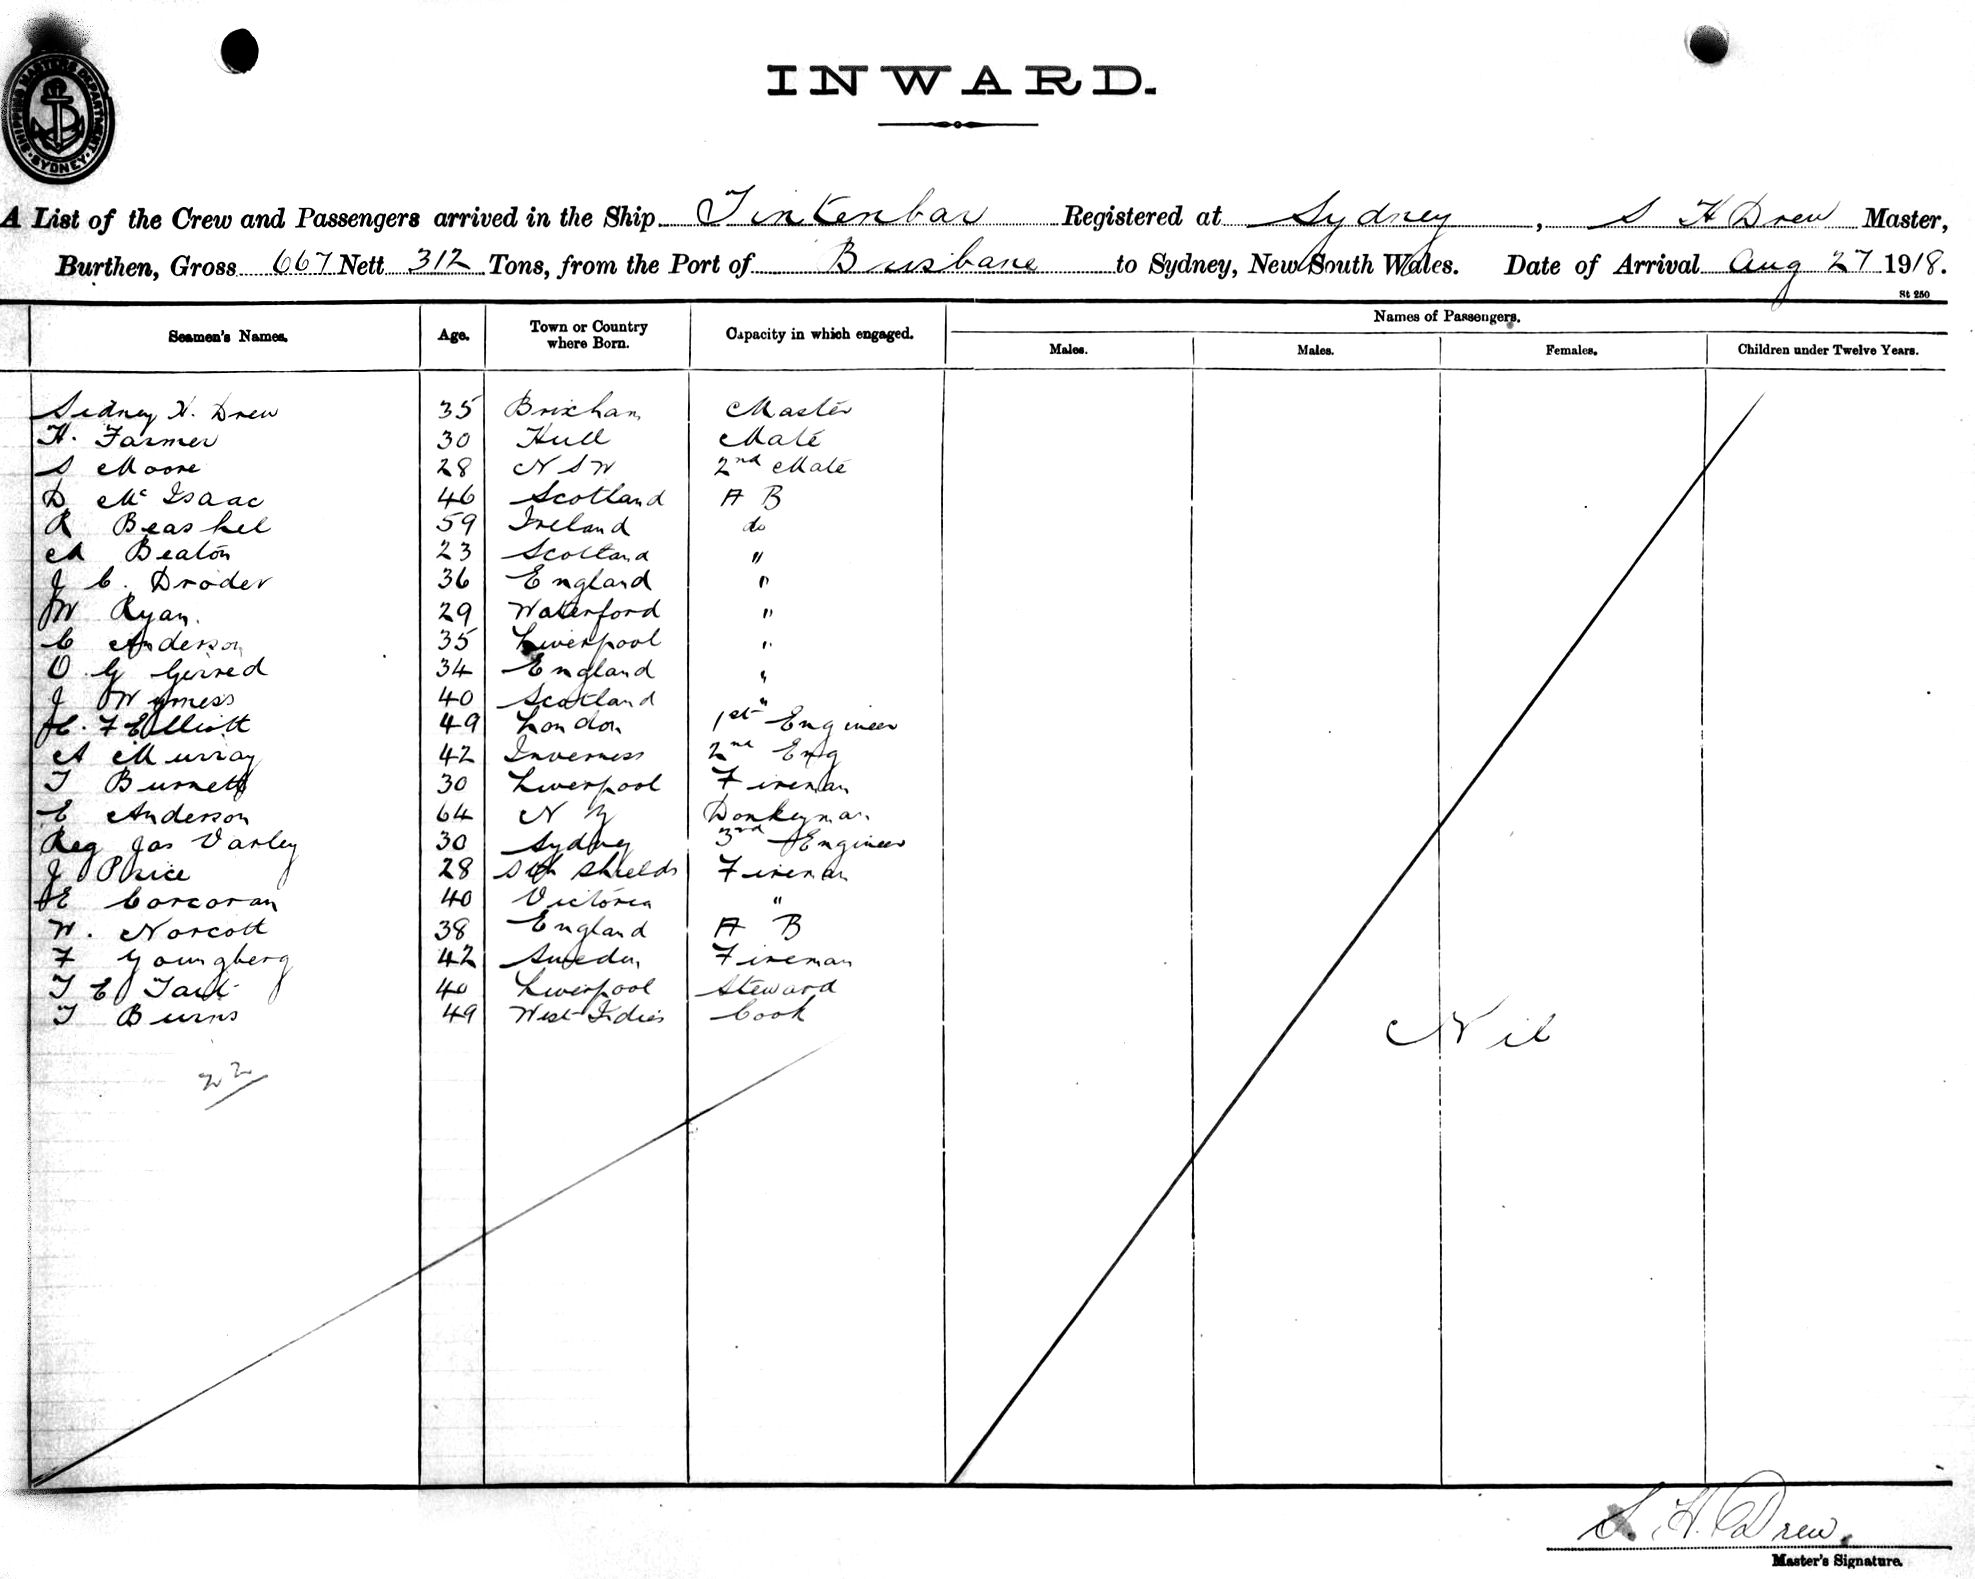 SHIPPING MASTERS DEPARTMENT SYDNEY
INWARD.
A List of the Crew and Passengers arrived in the Ship Tintenbar Registered at Sydney, S H Drew Master,
Burthen, Gross 667 Nett 312 Tons, from the Port of Brisbane to Sydney, New South Wales. Date of Arrival Aug 27 1918.
St 250
Seamen's Names. Age. Town or Country where Born. Capacity in which engaged. Names of Passengers.
Males. Males. Females. Children under Twelve Years.
Sidney H. Drew 35 Brixham Master
H. Farmer 30 Hull Mate
S Moore 28 N S W 2nd Mate
D McIsaac 46 Scotland A B
R Beashel 59 Ireland do
M Beaton 23 Scotland "
J C. Droder 36 England "
W Ryan. 29 Waterford "
C Anderson 35 Liverpool "
O G Girred 34 England "
J Wyness 40 Scotland "
H. F Elliott 49 London 1st Engineer
A Murray 42 Inverness 2nd Eng
T Burnett 30 Liverpool Fireman
E Anderson 64 N Z Donkeyman
Reg Jas Varley 30 Sydney 3rd Engineer
J Price 28 Sth Shields Fireman
E Corcoran 40 Victoria "
W. Norcott 38 England A B
F Youngberg 42 Sweden Fireman
T E Tait 40 Liverpool Steward
T Burns 49 West Indies Cook
22
Nil
S. H. Drew.
Master's Signature.